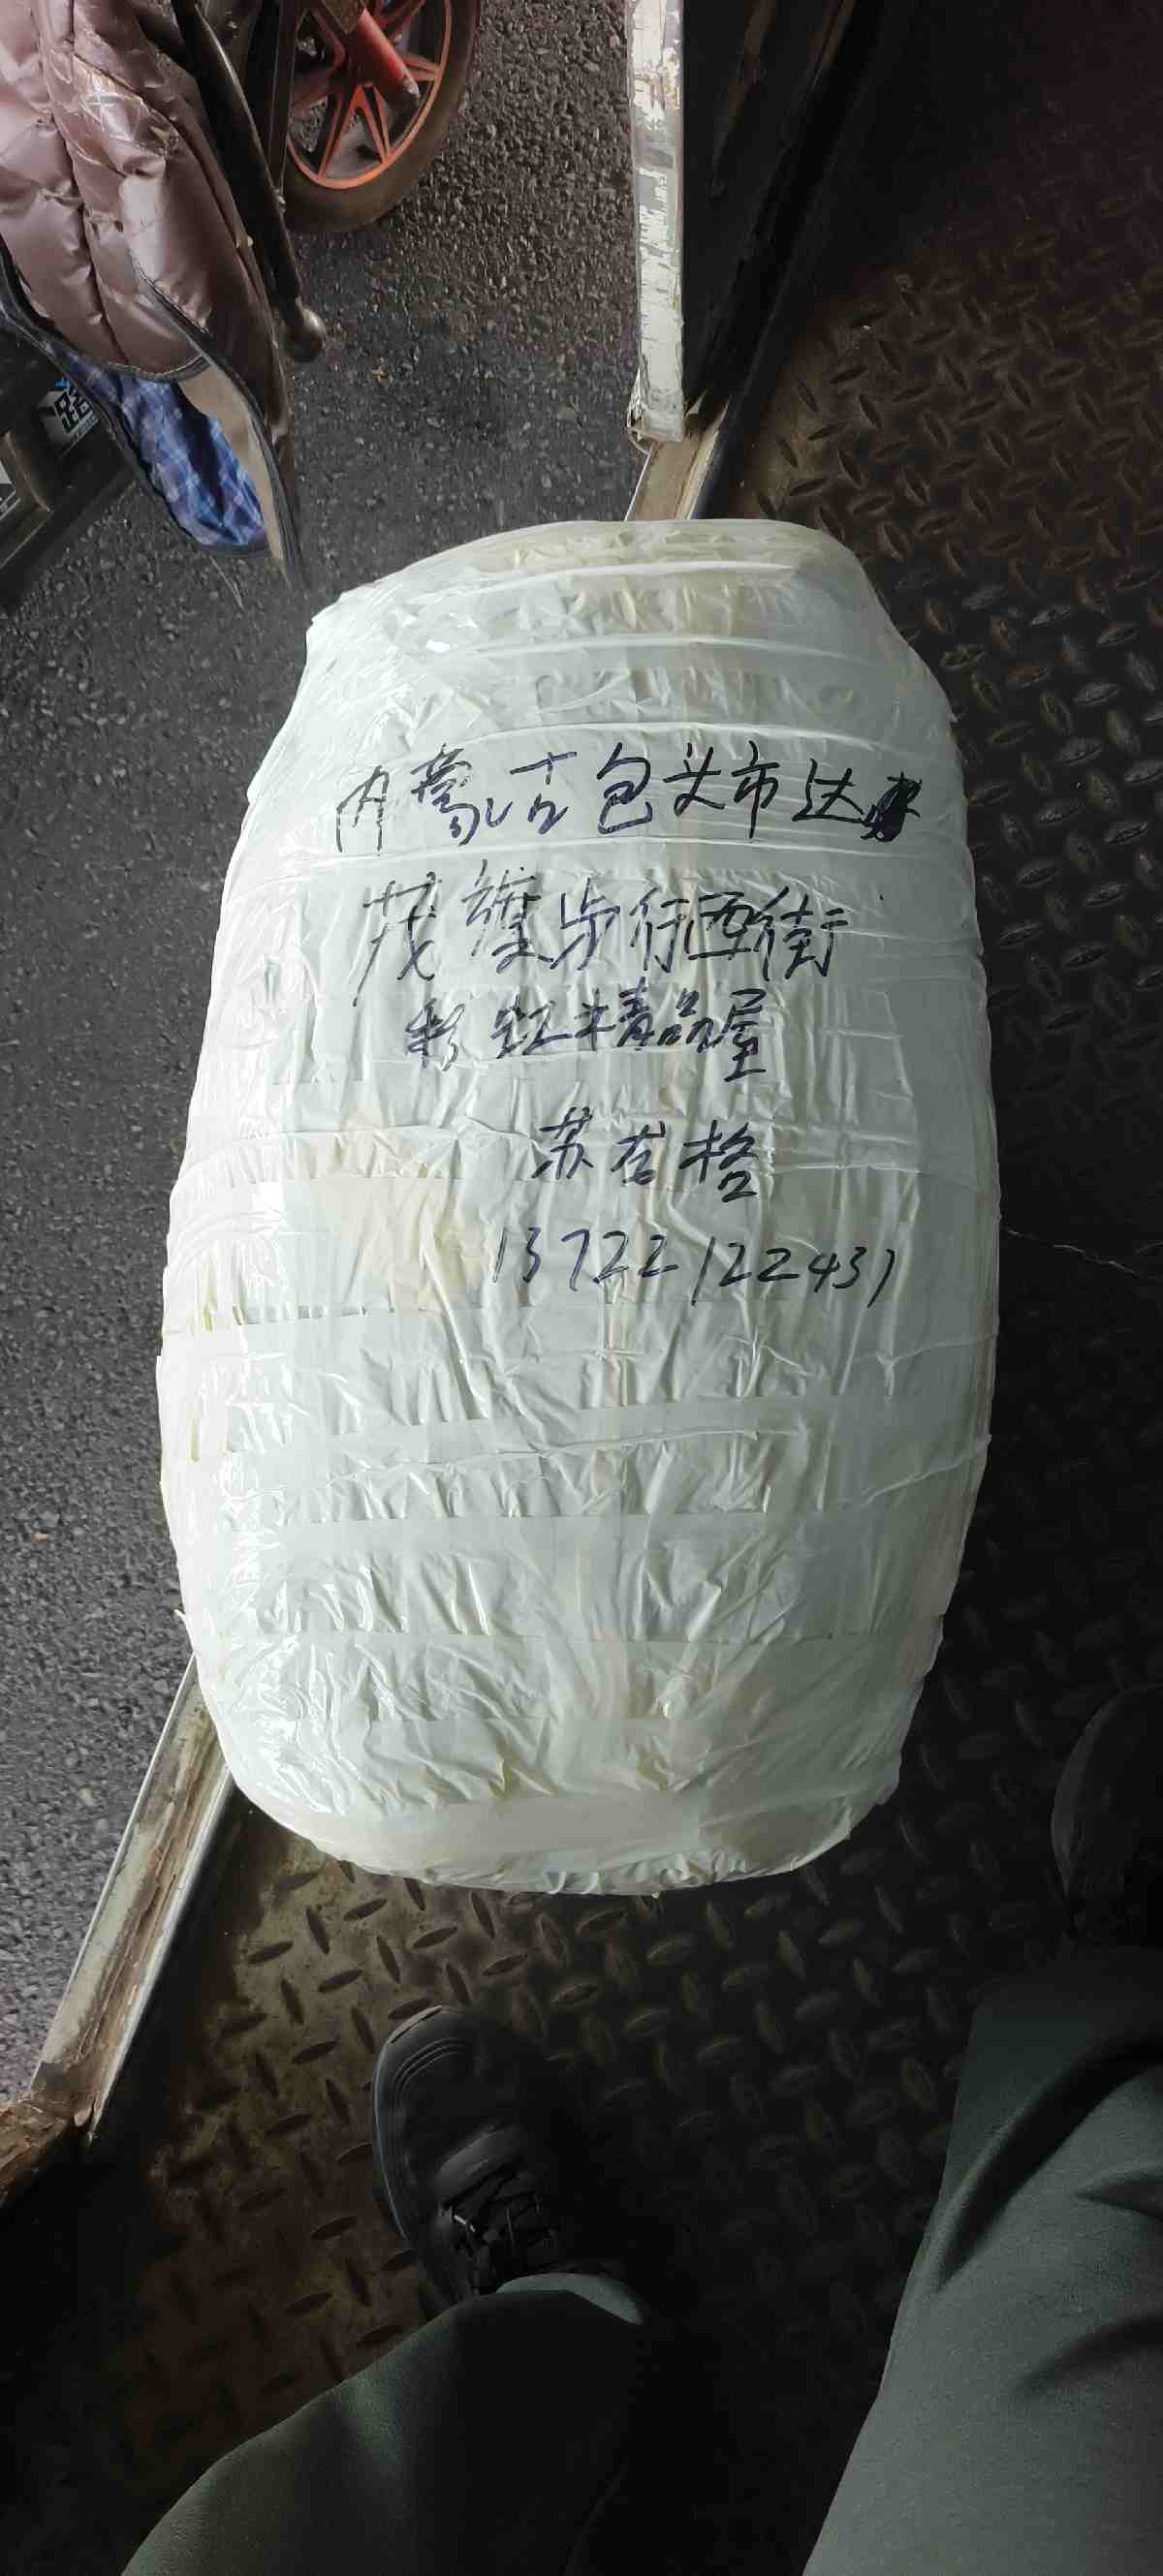 内蒙古包头市达
茂旗步行西街
彩虹精品屋
苏右格
13722122431